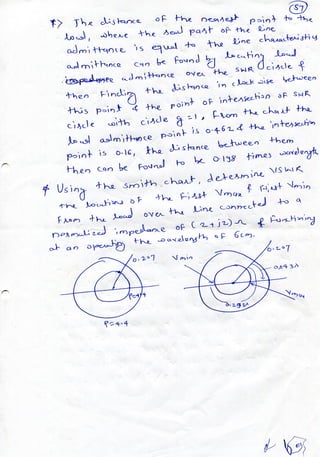 87
The distance of the nearest point to the
load, where the real part of the line
admittance is equal to the line characteristic
admittance can be found by locating load
admittance over the SWR circle &
then Finding the distance in clock wise between
this point & the point of intersection of SWR
circle with circle g = 1, From the chart the
load admittance point is 0.462 & the intersection
point is 0.16, the distance between them
then can be Found to be 0.198 times wavelength
* Using the smith chart, determine VSWR
the locations of the First Vmax & First Vmin
From the load over the line connected to a
normalized impedance of (2+j2)Ω & Functioning
at an operating the wavelength of 6cm.
0.207
Vmin
0.207
Vmax
P=4.4